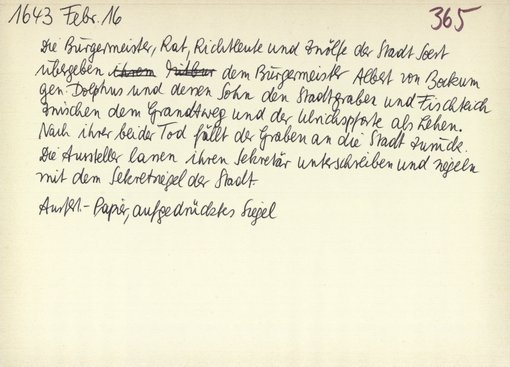 1643 Febr. 16 365
Die Bürgermeister, Rat, Richtleute und Zwölfe der Stadt Soest
übergeben ihrem Mitbur dem Bürgermeister Albert von Bockum
gen. Dolphus und dessen Sohn den Stadtgraben und Fischteich
zwischen dem Grandtweg und der Ulrichspforte als Lehen.
Nach ihrer beider Tod fällt der Graben an die Stadt zurück.
Die Aussteller lassen ihren Sekretär unterschreiben und siegeln
mit dem Sekretsiegel der Stadt.
Ausfert.- Papier, aufgedrücktes Siegel